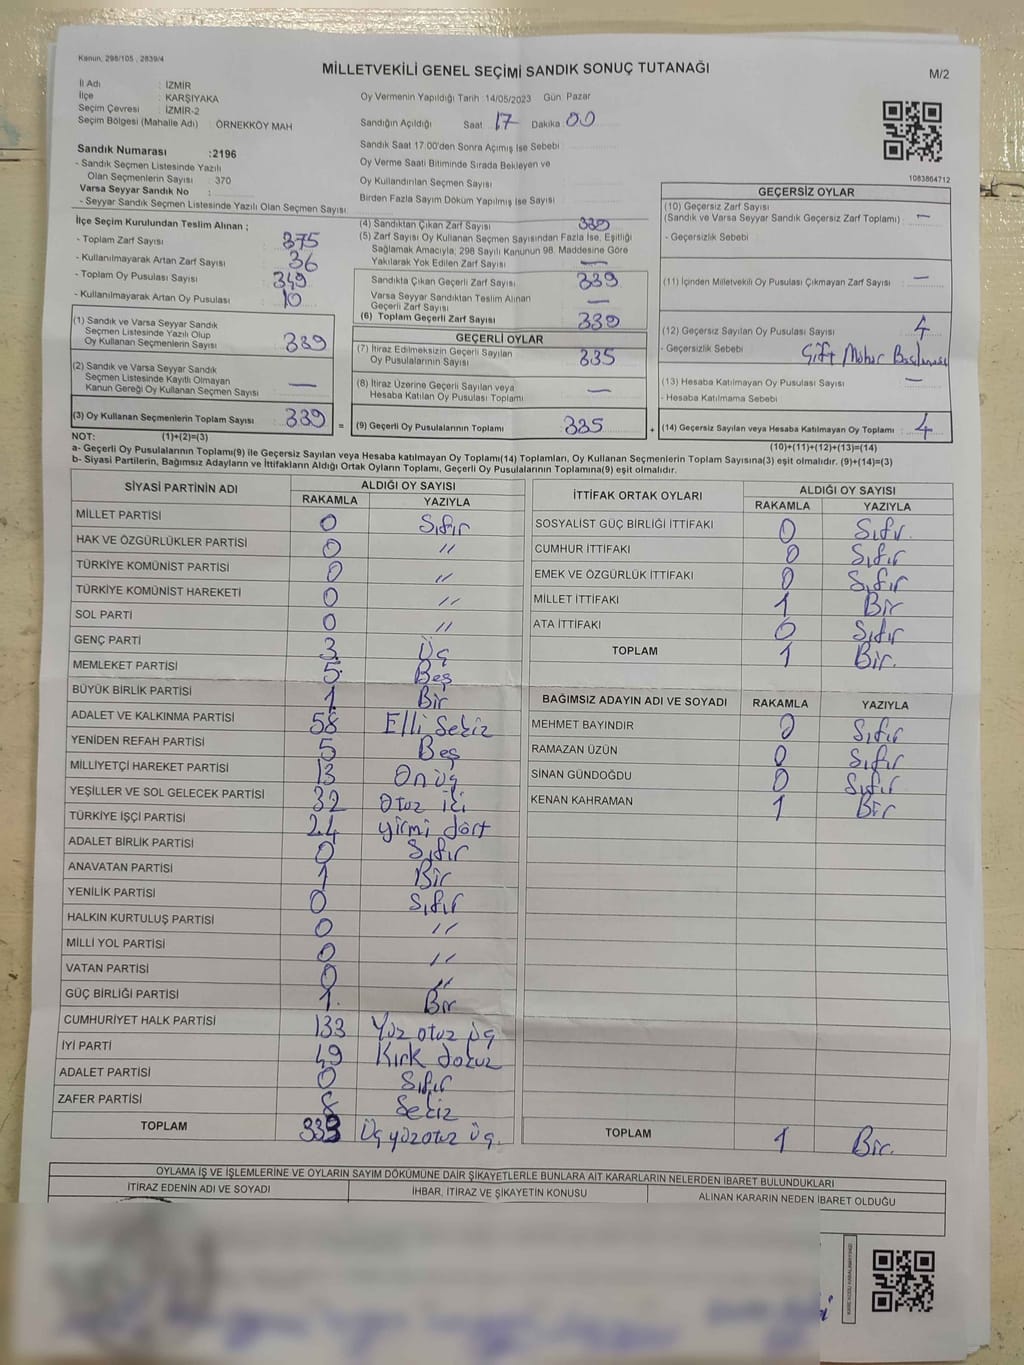 Kanun, 298/105 , 2839/4
MİLLETVEKİLİ GENEL SEÇİMİ SANDIK SONUÇ TUTANAĞI
M/2
İl Adı : İZMİR
İlçe : KARŞIYAKA
Seçim Çevresi : İZMİR-2
Seçim Bölgesi (Mahalle Adı) : ÖRNEKKÖY MAH
Oy Vermenin Yapıldığı Tarih :14/05/2023 Gün: Pazar
Sandığın Açıldığı Saat 17 Dakika 00
Sandık Saat 17.00'den Sonra Açımış İse Sebebi
Oy Verme Saati Bitiminde Sırada Bekleyen ve
Oy Kullandırılan Seçmen Sayısı
Birden Fazla Sayım Döküm Yapılmış İse Sayısı
1083864712
Sandık Numarası :2196
- Sandık Seçmen Listesinde Yazılı
Olan Seçmenlerin Sayısı : 370
Varsa Seyyar Sandık No :
- Seyyar Sandık Seçmen Listesinde Yazılı Olan Seçmen Sayısı
İlçe Seçim Kurulundan Teslim Alınan ;
- Toplam Zarf Sayısı 375
- Kullanılmayarak Artan Zarf Sayısı 36
- Toplam Oy Pusulası Sayısı 349
- Kullanılmayarak Artan Oy Pusulası 10
(1) Sandık ve Varsa Seyyar Sandık
Seçmen Listesinde Yazılı Olup
Oy Kullanan Seçmenlerin Sayısı 339
(2) Sandık ve Varsa Seyyar Sandık
Seçmen Listesinde Kayıtlı Olmayan
Kanun Gereği Oy Kullanan Seçmen Sayısı —
(3) Oy Kullanan Seçmenlerin Toplam Sayısı 339 =
(4) Sandıktan Çıkan Zarf Sayısı 339
(5) Zarf Sayısı Oy Kullanan Seçmen Sayısından Fazla İse, Eşitliği
Sağlamak Amacıyla, 298 Sayılı Kanunun 98. Maddesine Göre
Yakılarak Yok Edilen Zarf Sayısı —
Sandıkta Çıkan Geçerli Zarf Sayısı 339
Varsa Seyyar Sandıktan Teslim Alınan
Geçerli Zarf Sayısı —
(6) Toplam Geçerli Zarf Sayısı 339
GEÇERLİ OYLAR
(7) İtiraz Edilmeksizin Geçerli Sayılan
Oy Pusulalarının Sayısı 335
(8) İtiraz Üzerine Geçerli Sayılan veya
Hesaba Katılan Oy Pusulası Toplamı —
(9) Geçerli Oy Pusulalarının Toplamı 335 +
GEÇERSİZ OYLAR
(10) Geçersiz Zarf Sayısı
(Sandık ve Varsa Seyyar Sandık Geçersiz Zarf Toplamı) —
- Geçersizlik Sebebi
(11) İçinden Milletvekili Oy Pusulası Çıkmayan Zarf Sayısı —
(12) Geçersiz Sayılan Oy Pusulası Sayısı 4
- Geçersizlik Sebebi Çift Mühür Basılması
(13) Hesaba Katılmayan Oy Pusulası Sayısı —
- Hesaba Katılmama Sebebi
(14) Geçersiz Sayılan veya Hesaba Katılmayan Oy Toplamı 4
NOT: (1)+(2)=(3) (10)+(11)+(12)+(13)=(14)
a- Geçerli Oy Pusulalarının Toplamı(9) ile Geçersiz Sayılan veya Hesaba katılmayan Oy Toplamı(14) Toplamları, Oy Kullanan Seçmenlerin Toplam Sayısına(3) eşit olmalıdır. (9)+(14)=(3)
b- Siyasi Partilerin, Bağımsız Adayların ve İttifakların Aldığı Ortak Oyların Toplamı, Geçerli Oy Pusulalarının Toplamına(9) eşit olmalıdır.
SİYASİ PARTİNİN ADI ALDIĞI OY SAYISI
RAKAMLA YAZIYLA
MİLLET PARTİSİ 0 Sıfır
HAK VE ÖZGÜRLÜKLER PARTİSİ 0 "
TÜRKİYE KOMÜNİST PARTİSİ 0 "
TÜRKİYE KOMÜNİST HAREKETİ 0 "
SOL PARTİ 0 "
GENÇ PARTİ 3 Üç
MEMLEKET PARTİSİ 5 Beş
BÜYÜK BİRLİK PARTİSİ 1 Bir
ADALET VE KALKINMA PARTİSİ 58 Elli Sekiz
YENİDEN REFAH PARTİSİ 5 Beş
MİLLİYETÇİ HAREKET PARTİSİ 13 On üç
YEŞİLLER VE SOL GELECEK PARTİSİ 32 Otuz iki
TÜRKİYE İŞÇİ PARTİSİ 24 yirmi dört
ADALET BİRLİK PARTİSİ 0 Sıfır
ANAVATAN PARTİSİ 1 Bir
YENİLİK PARTİSİ 0 Sıfır
HALKIN KURTULUŞ PARTİSİ 0 "
MİLLİ YOL PARTİSİ 0 "
VATAN PARTİSİ 0 "
GÜÇ BİRLİĞİ PARTİSİ 1. Bir
CUMHURİYET HALK PARTİSİ 133 Yüz otuz üç
İYİ PARTİ 49 Kırk dokuz
ADALET PARTİSİ 0 Sıfır
ZAFER PARTİSİ 8 Sekiz
TOPLAM 333 Üçyüzotuz üç.
İTTİFAK ORTAK OYLARI ALDIĞI OY SAYISI
RAKAMLA YAZIYLA
SOSYALİST GÜÇ BİRLİĞİ İTTİFAKI 0 Sıfır.
CUMHUR İTTİFAKI 0 Sıfır
EMEK VE ÖZGÜRLÜK İTTİFAKI 0 Sıfır
MİLLET İTTİFAKI 1 Bir
ATA İTTİFAKI 0 Sıfır
TOPLAM 1 Bir.
BAĞIMSIZ ADAYIN ADI VE SOYADI RAKAMLA YAZIYLA
MEHMET BAYINDIR 0 Sıfır
RAMAZAN ÜZÜN 0 Sıfır
SİNAN GÜNDOĞDU 0 Sıfır
KENAN KAHRAMAN 1 Bir
TOPLAM 1 Bir.
OYLAMA İŞ VE İŞLEMLERİNE VE OYLARIN SAYIM DÖKÜMÜNE DAİR ŞİKAYETLERLE BUNLARA AİT KARARLARIN NELERDEN İBARET BULUNDUKLARI
İTİRAZ EDENİN ADI VE SOYADI İHBAR, İTİRAZ VE ŞİKAYETİN KONUSU ALINAN KARARIN NEDEN İBARET OLDUĞU